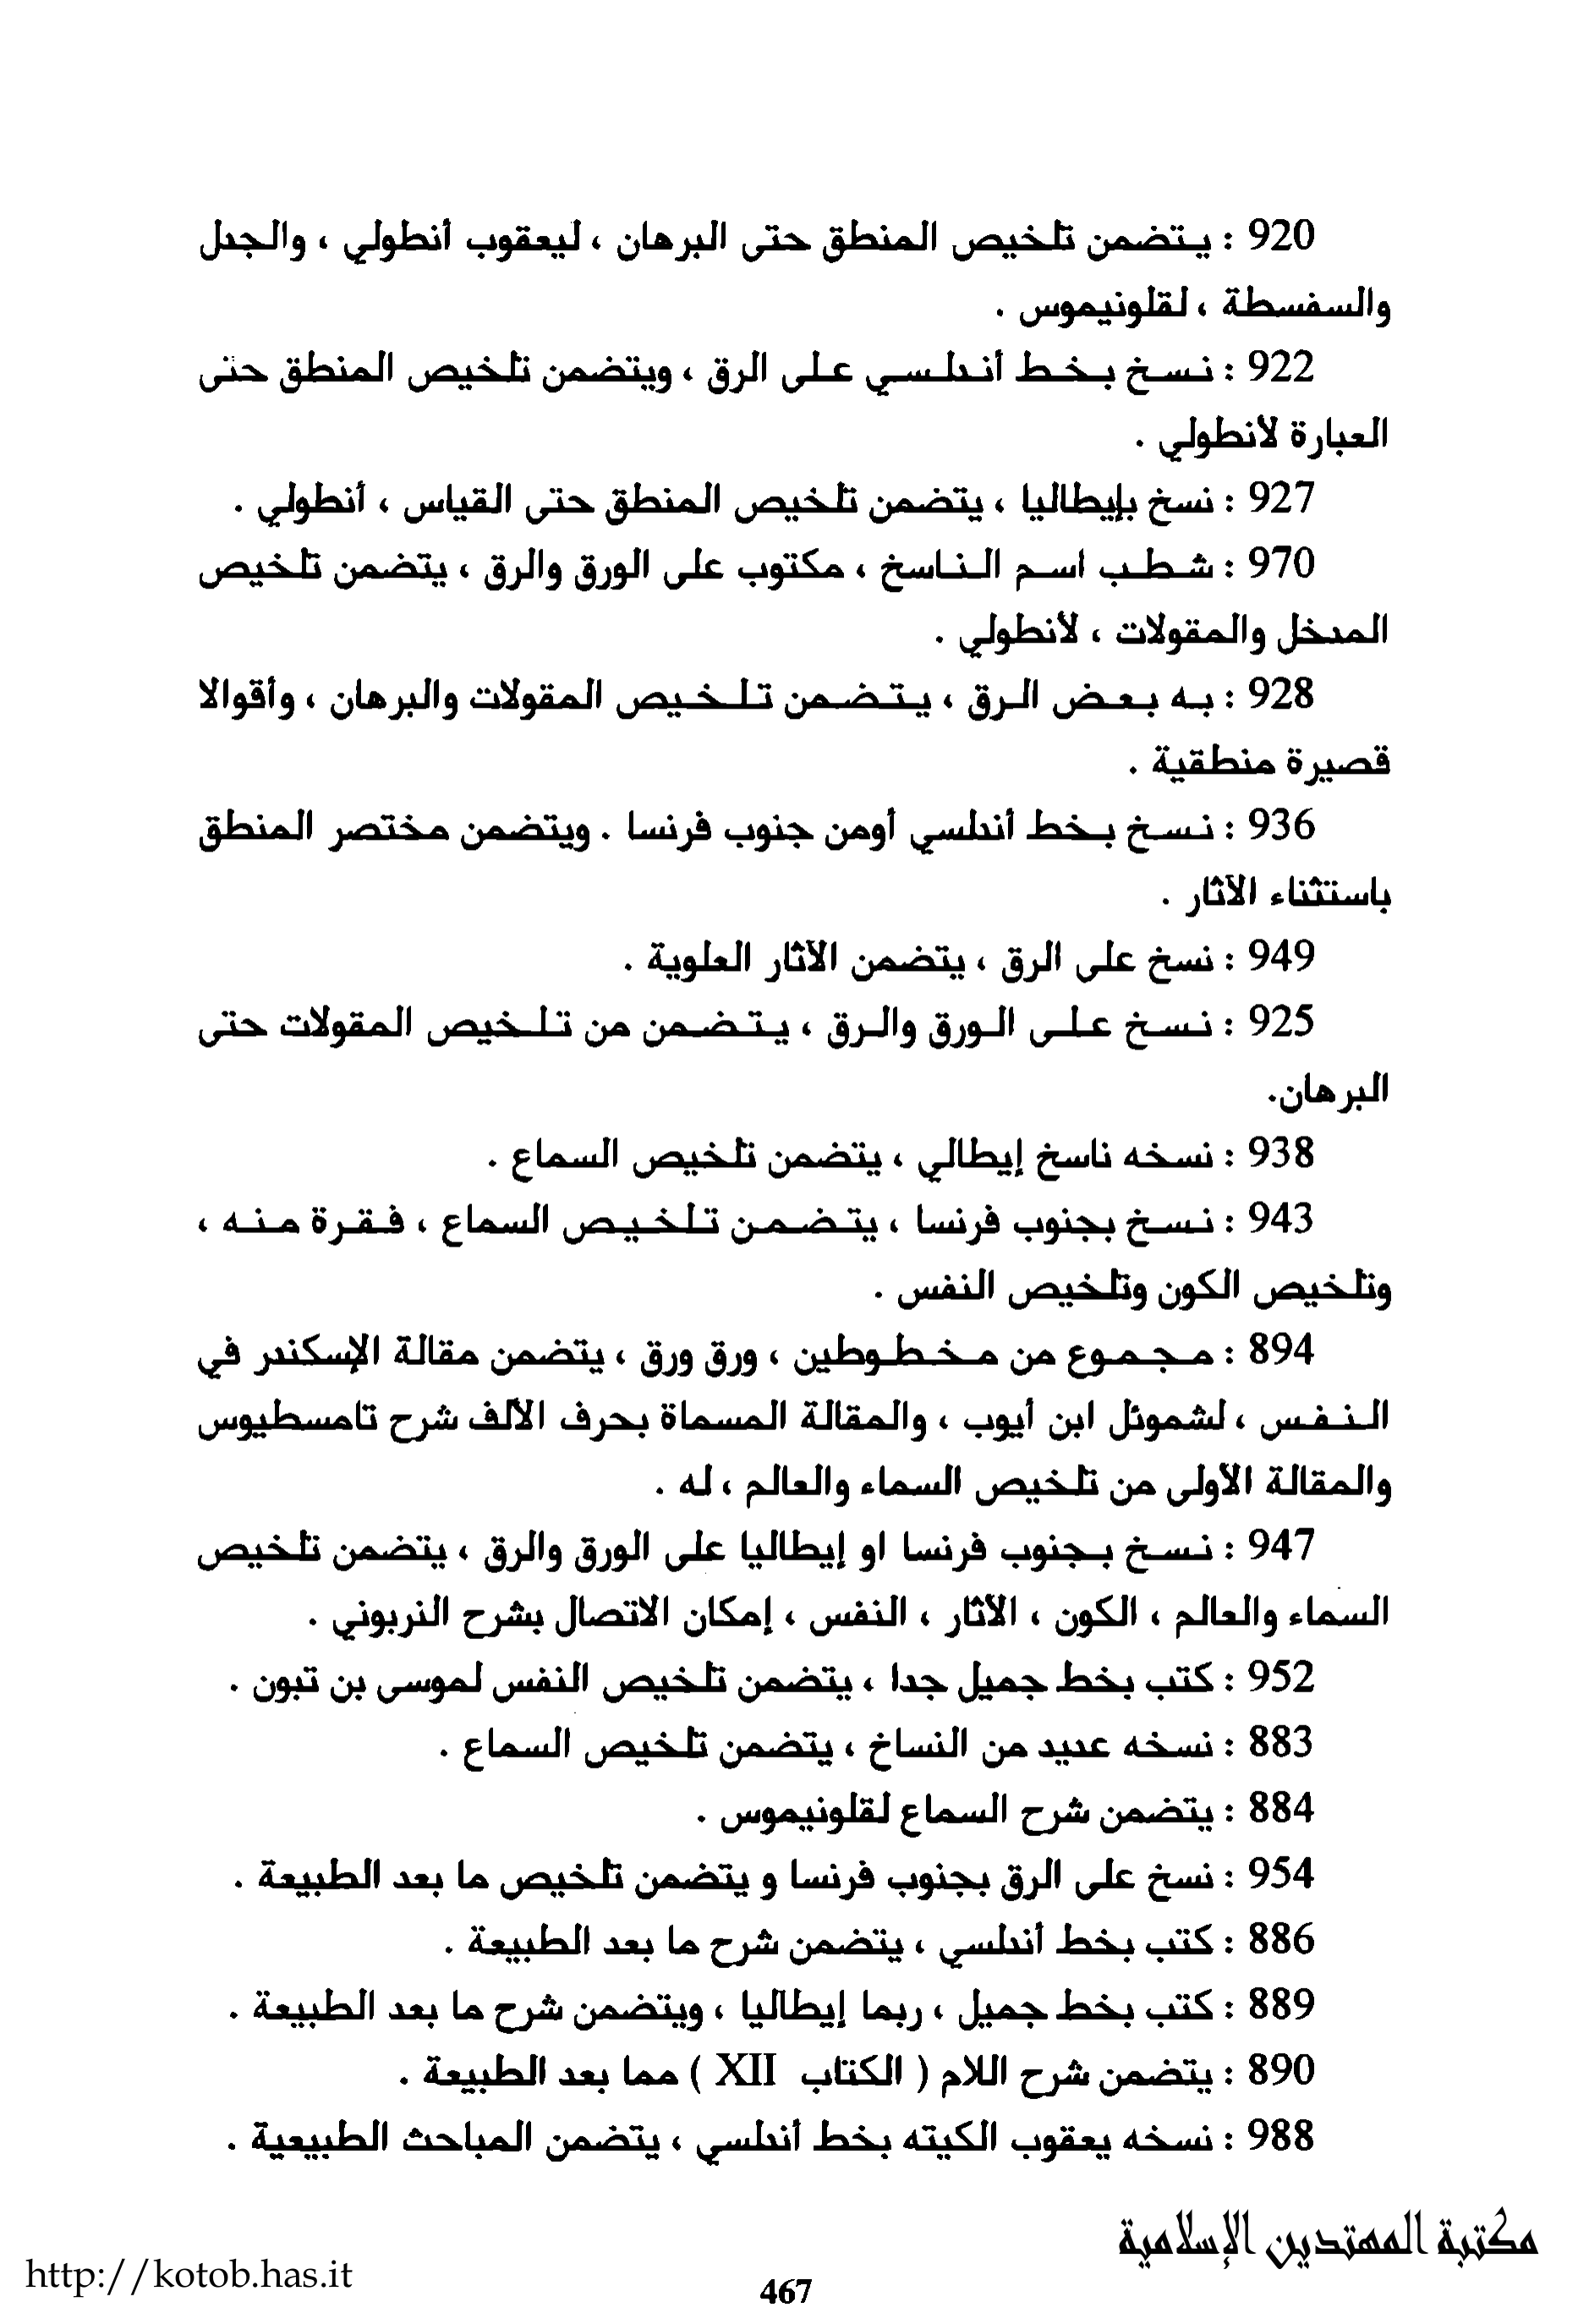 920 : يتضمن تلخيص المنطق حتى البرهان ، ليعقوب أنطولي ، والجدل
والسفسطة ، لقلونيموس .
922 : نسخ بخط أندلسي على الرق ، ويتضمن تلخيص المنطق حتى
العبارة لأنطولي .
927 : نسخ بإيطاليا ، يتضمن تلخيص المنطق حتى القياس ، أنطولي .
970 : شطب اسم الناسخ ، مكتوب على الورق والرق ، يتضمن تلخيص
المدخل والمقولات ، لأنطولي .
928 : به بعض الرق ، يتضمن تلخيص المقولات والبرهان ، وأقوالا
قصيرة منطقية .
936 : نسخ بخط أندلسي أومن جنوب فرنسا . ويتضمن مختصر المنطق
باستثناء الآثار .
949 : نسخ على الرق ، يتضمن الآثار العلوية .
925 : نسخ على الورق والرق ، يتضمن من تلخيص المقولات حتى
البرهان.
938 : نسخه ناسخ إيطالي ، يتضمن تلخيص السماع .
943 : نسخ بجنوب فرنسا ، يتضمن تلخيص السماع ، فقرة منه ،
وتلخيص الكون وتلخيص النفس .
894 : مجموع من مخطوطين ، ورق ورق ، يتضمن مقالة الإسكندر في
النفس ، لشموئل ابن أيوب ، والمقالة المسماة بحرف الألف شرح تامسطيوس
والمقالة الأولى من تلخيص السماء والعالم ، له .
947 : نسخ بجنوب فرنسا او إيطاليا على الورق والرق ، يتضمن تلخيص
السماء والعالم ، الكون ، الآثار ، النفس ، إمكان الاتصال بشرح النربوني .
952 : كتب بخط جميل جدا ، يتضمن تلخيص النفس لموسى بن تبون .
883 : نسخه عديد من النساخ ، يتضمن تلخيص السماع .
884 : يتضمن شرح السماع لقلونيموس .
954 : نسخ على الرق بجنوب فرنسا و يتضمن تلخيص ما بعد الطبيعة .
886 : كتب بخط أندلسي ، يتضمن شرح ما بعد الطبيعة .
889 : كتب بخط جميل ، ربما إيطاليا ، ويتضمن شرح ما بعد الطبيعة .
890 : يتضمن شرح اللام ( الكتاب XII ) مما بعد الطبيعة .
988 : نسخه يعقوب الكيته بخط أندلسي ، يتضمن المباحث الطبيعية .
مكتبة المهتدين الإسلامية
http://kotob.has.it
467